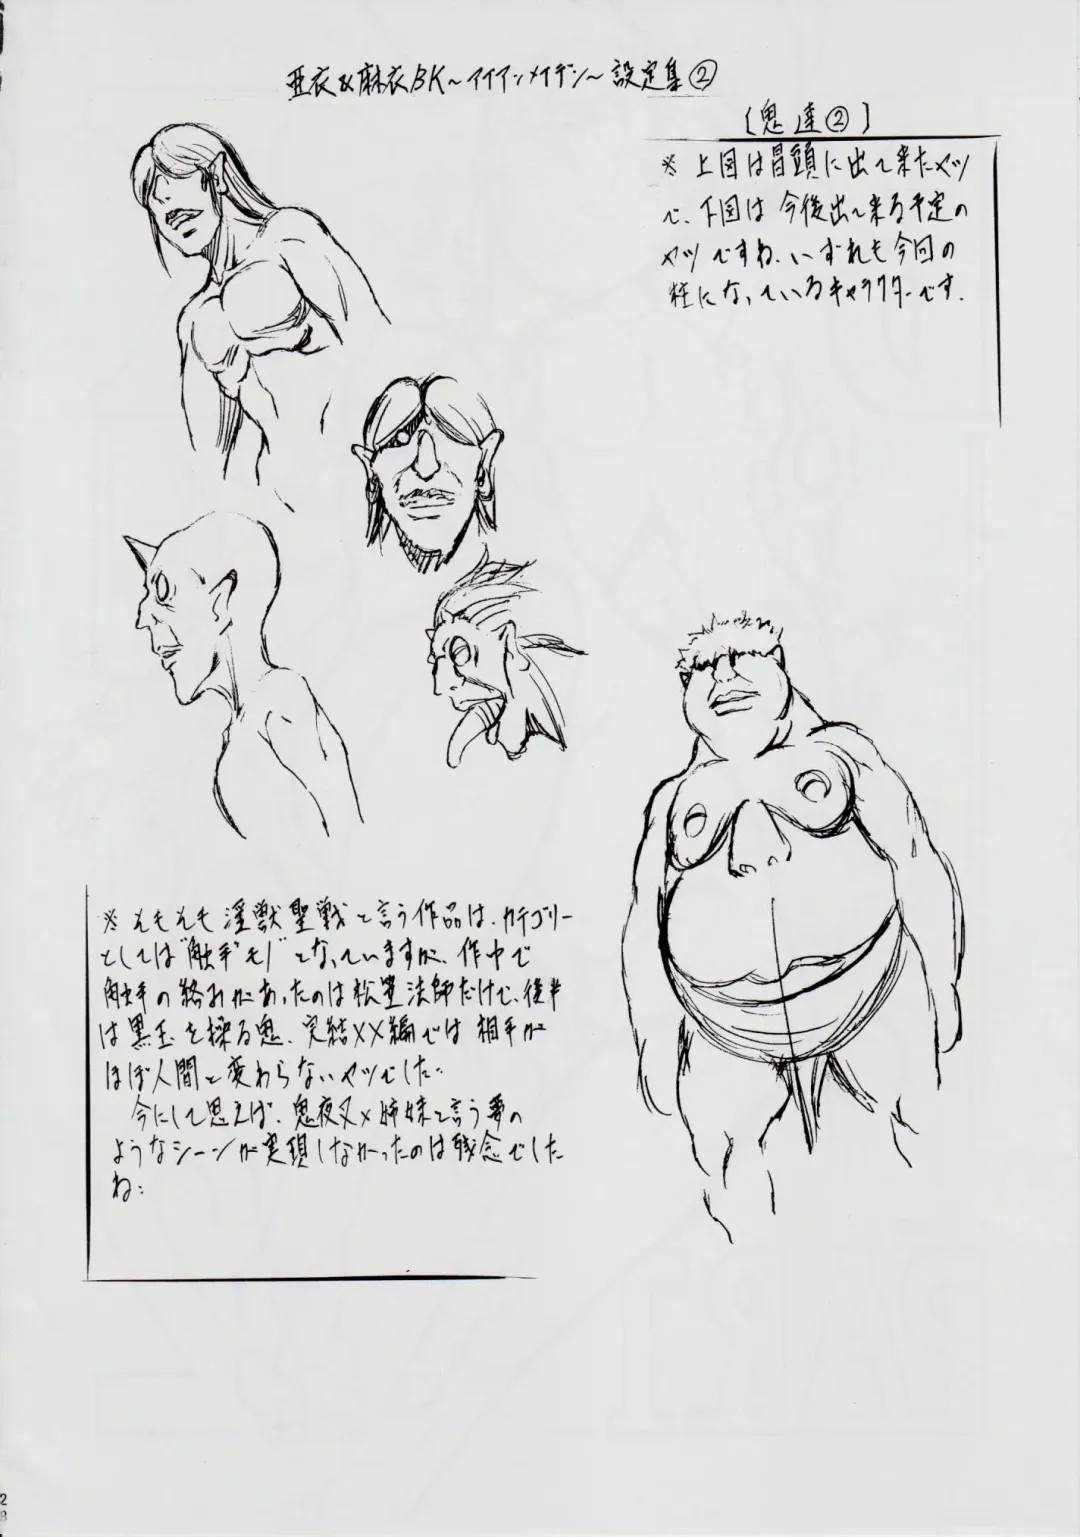 亜衣&麻衣BK~アイアンメイデン~設定集②
[鬼達②]
※上図は冒頭に出て来たヤツ
で、下図は今後出て来る予定の
ヤツですね、いずれも今回の
柱になっているキャラクターです.
※そもそも淫獣聖戦と言う作品は、カテゴリー
としては"触手モノ"となっていますが、作中で
触手の絡みがあったのは松笠法師だけで、後半
は黒玉を操る鬼、完結××編では相手が
ほぼ人間と変わらないヤツでした…
今にして思えば、鬼夜叉×姉妹と言う夢の
ようなシーンが実現しなかったのは残念でした
ね…
28